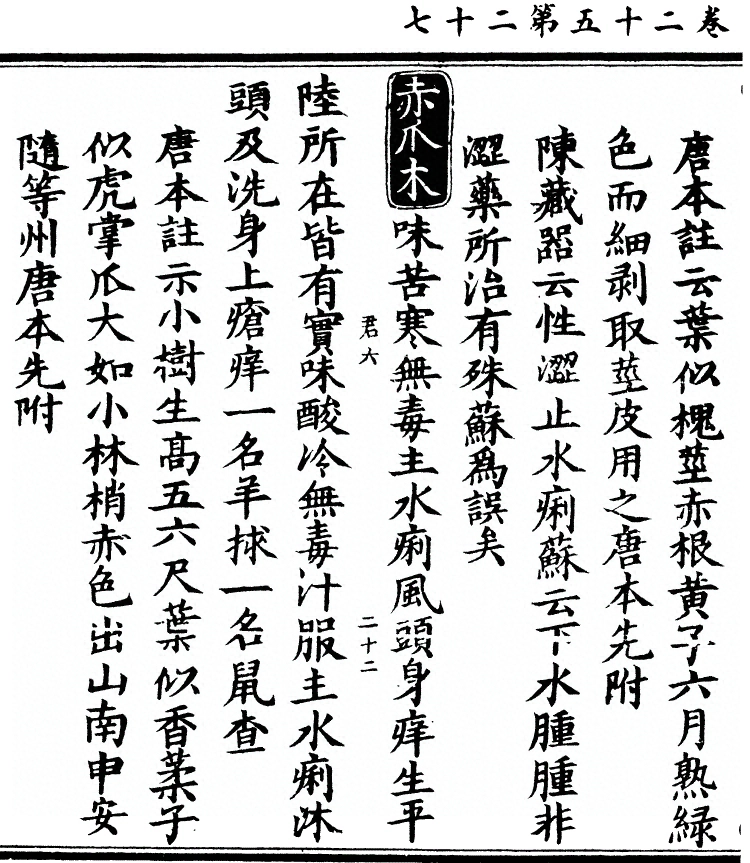 卷二十五第二十七
唐本註云葉似槐莖赤根黃子六月熟綠
色而細剥取莖皮用之唐本先附
陳藏器云性澀止水痢蘇云下水腫腫非
澀藥所治有殊蘇爲誤矣
赤爪木味苦寒無毒主水痢風頭身痒生平
君六
二十二
陸所在皆有實味酸冷無毒汁服主水痢沐
頭及洗身上瘡痒一名羊梂一名鼠查
唐本註示小樹生高五六尺葉似香葇子
似虎掌爪大如小林檎赤色出山南申安
隨等州唐本先附